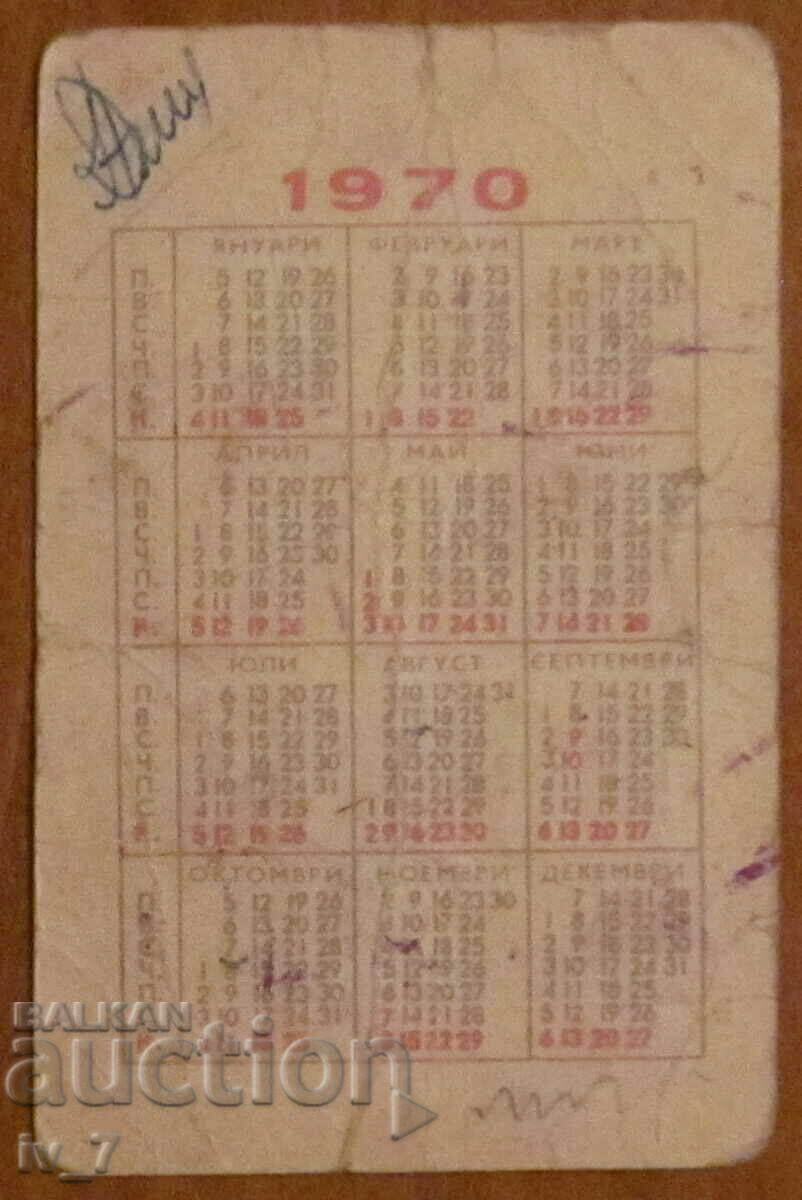 1970
ЯНУАРИ ФЕВРУАРИ МАРТ
П. 5 12 19 26 2 9 16 23 2 9 16 23 30
В. 6 13 20 27 3 10 17 24 3 10 17 24 31
С. 7 14 21 28 4 11 18 25 4 11 18 25
Ч. 1 8 15 22 29 5 12 19 26 5 12 19 26
П. 2 9 16 23 30 6 13 20 27 6 13 20 27
С. 3 10 17 24 31 7 14 21 28 7 14 21 28
Н. 4 11 18 25 1 8 15 22 1 8 15 22 29
АПРИЛ МАЙ ЮНИ
П. 6 13 20 27 4 11 18 25 1 8 15 22 29
В. 7 14 21 28 5 12 19 26 2 9 16 23 30
С. 1 8 15 22 29 6 13 20 27 3 10 17 24
Ч. 2 9 16 23 30 7 14 21 28 4 11 18 25
П. 3 10 17 24 1 8 15 22 29 5 12 19 26
С. 4 11 18 25 2 9 16 23 30 6 13 20 27
Н. 5 12 19 26 3 11 17 24 31 7 14 21 28
ЮЛИ АВГУСТ СЕПТЕМВРИ
П. 6 13 20 27 3 10 17 24 31 7 14 21 28
В. 7 14 21 28 4 11 18 25 1 8 15 22 29
С. 1 8 15 22 29 5 12 19 26 2 9 16 23 30
Ч. 2 9 16 23 30 6 13 20 27 3 10 17 24
П. 3 10 17 24 31 7 14 21 28 4 11 18 25
С. 4 11 18 25 1 8 15 22 29 5 12 19 26
Н. 5 12 19 26 2 9 16 23 30 6 13 20 27
ОКТОМВРИ НОЕМВРИ ДЕКЕМВРИ
П. 5 12 19 26 2 9 16 23 30 7 14 21 28
В. 6 13 20 27 3 10 17 24 1 8 15 22 29
С. 7 14 21 28 18 25 2 9 16 23 30
Ч. 1 8 15 22 29 5 12 19 26 3 10 17 24 31
П. 2 9 16 23 30 6 13 20 27 4 11 18 25
С. 3 10 17 24 31 7 14 21 28 5 12 19 26
Н. 4 11 18 25 15 22 29 6 13 20 27
BALKAN
auction
iv_7